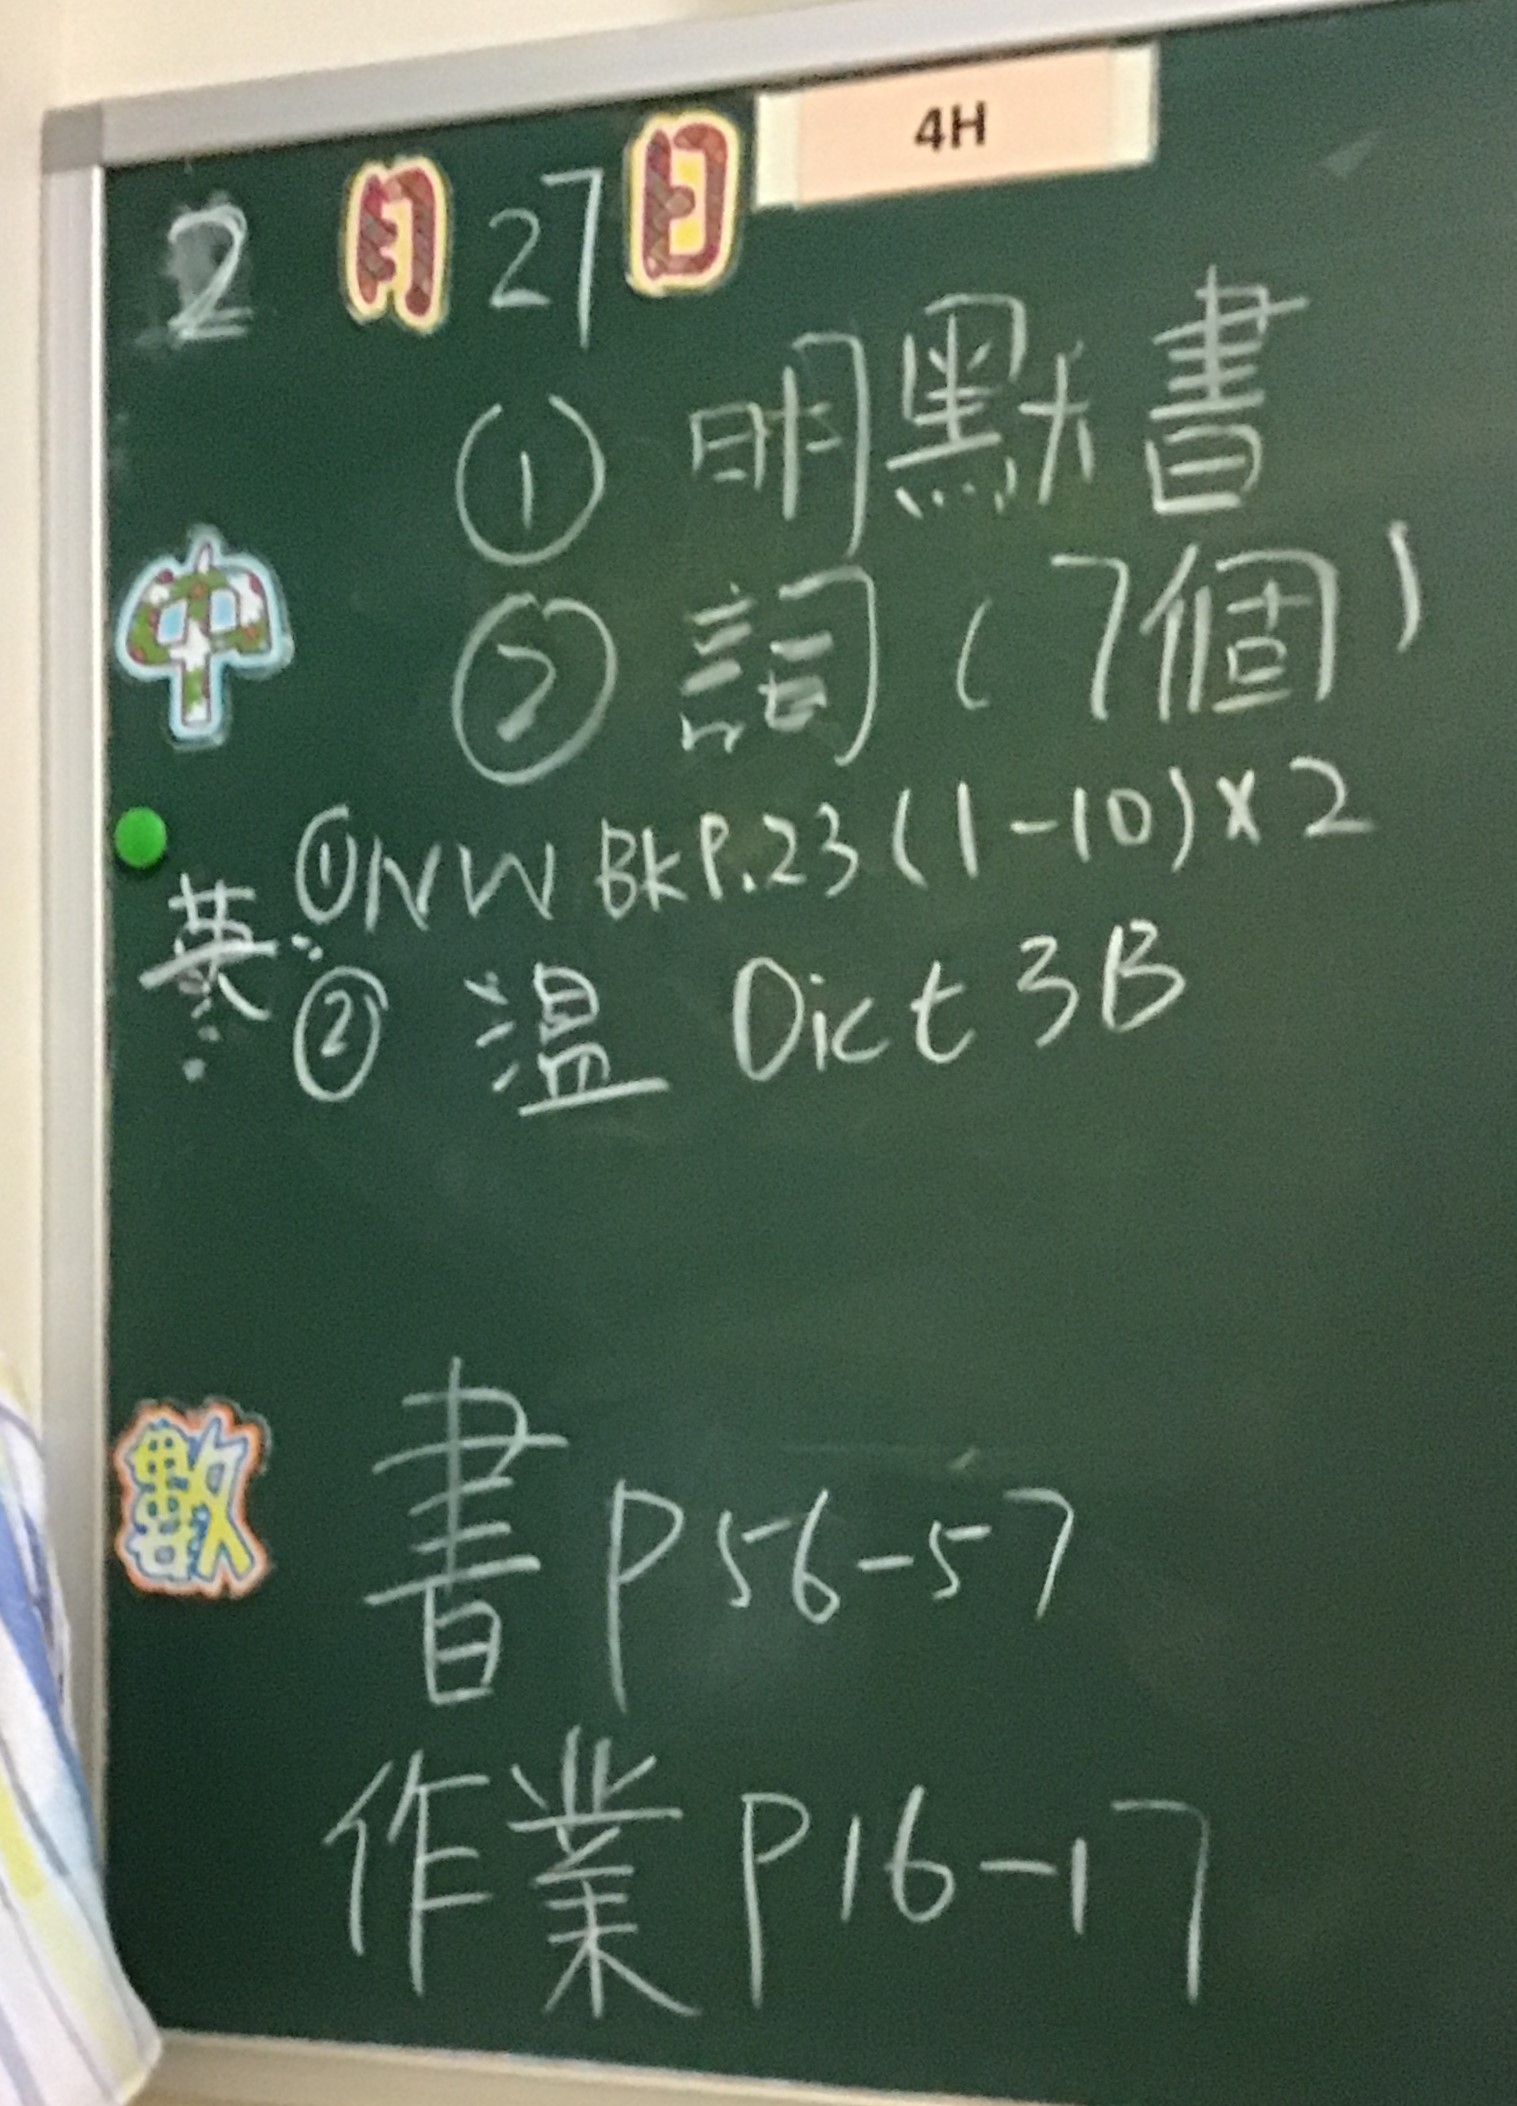 4H
2月27日
① 明默書
中 ② 詞(7個)
英 ① NW BK P.23 (1-10) x 2
② 溫 Dict 3B
數 書 P 56-57
作業 P 16-17